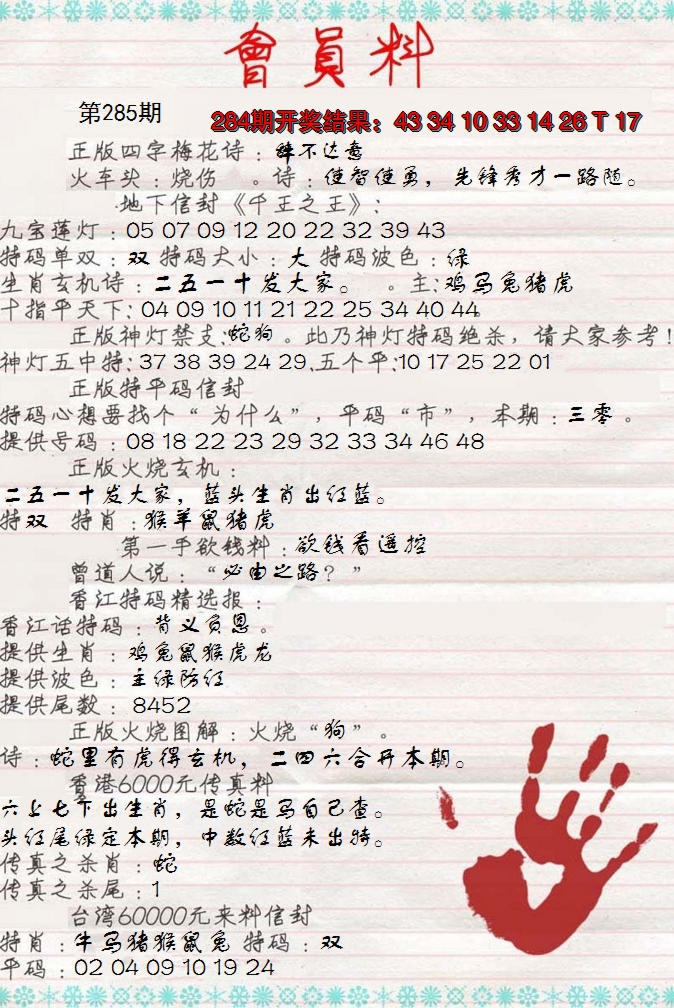 會員料
第285期
284期开奖结果：43 34 10 33 14 26 T 17
正版四字梅花诗：辞不达意
火车头：烧伤 。诗：使智使勇，先锋秀才一路随。
地下信封《千王之王》：
九宝莲灯：05 07 09 12 20 22 32 39 43
特码单双：双 特码大小：大 特码波色：绿
生肖玄机诗：二五一十发大家。 。主：鸡马兔猪虎
十指平天下：04 09 10 11 21 22 25 34 40 44
正版神灯禁支：蛇狗 。此乃神灯特码绝杀，请大家参考！
神灯五中特：37 38 39 24 29.五个平：10 17 25 22 01
正版特平码信封
特码心想要找个“为什么”，平码“市”，本期：三零 。
提供号码：08 18 22 23 29 32 33 34 46 48
正版火烧玄机：
二五一十发大家，蓝头生肖出红蓝。
特双 特肖：猴羊鼠猪虎
第一手欲钱料：欲钱看遥控
曾道人说：“必由之路？”
香江特码精选报：
香江话特码：背义负恩。
提供生肖：鸡兔鼠猴虎龙
提供波色：主绿防红
提供尾数：8452
正版火烧图解：火烧“狗”。
诗：蛇里有虎得玄机，二四六合开本期。
香港6000元传真料
六上七下出生肖，是蛇是马自己查。
头红尾绿定本期，中数红蓝未出特。
传真之杀肖：蛇
传真之杀尾：1
台湾60000元来料信封
特肖：牛马猪猴鼠兔 特码：双
平码：02 04 09 10 19 24